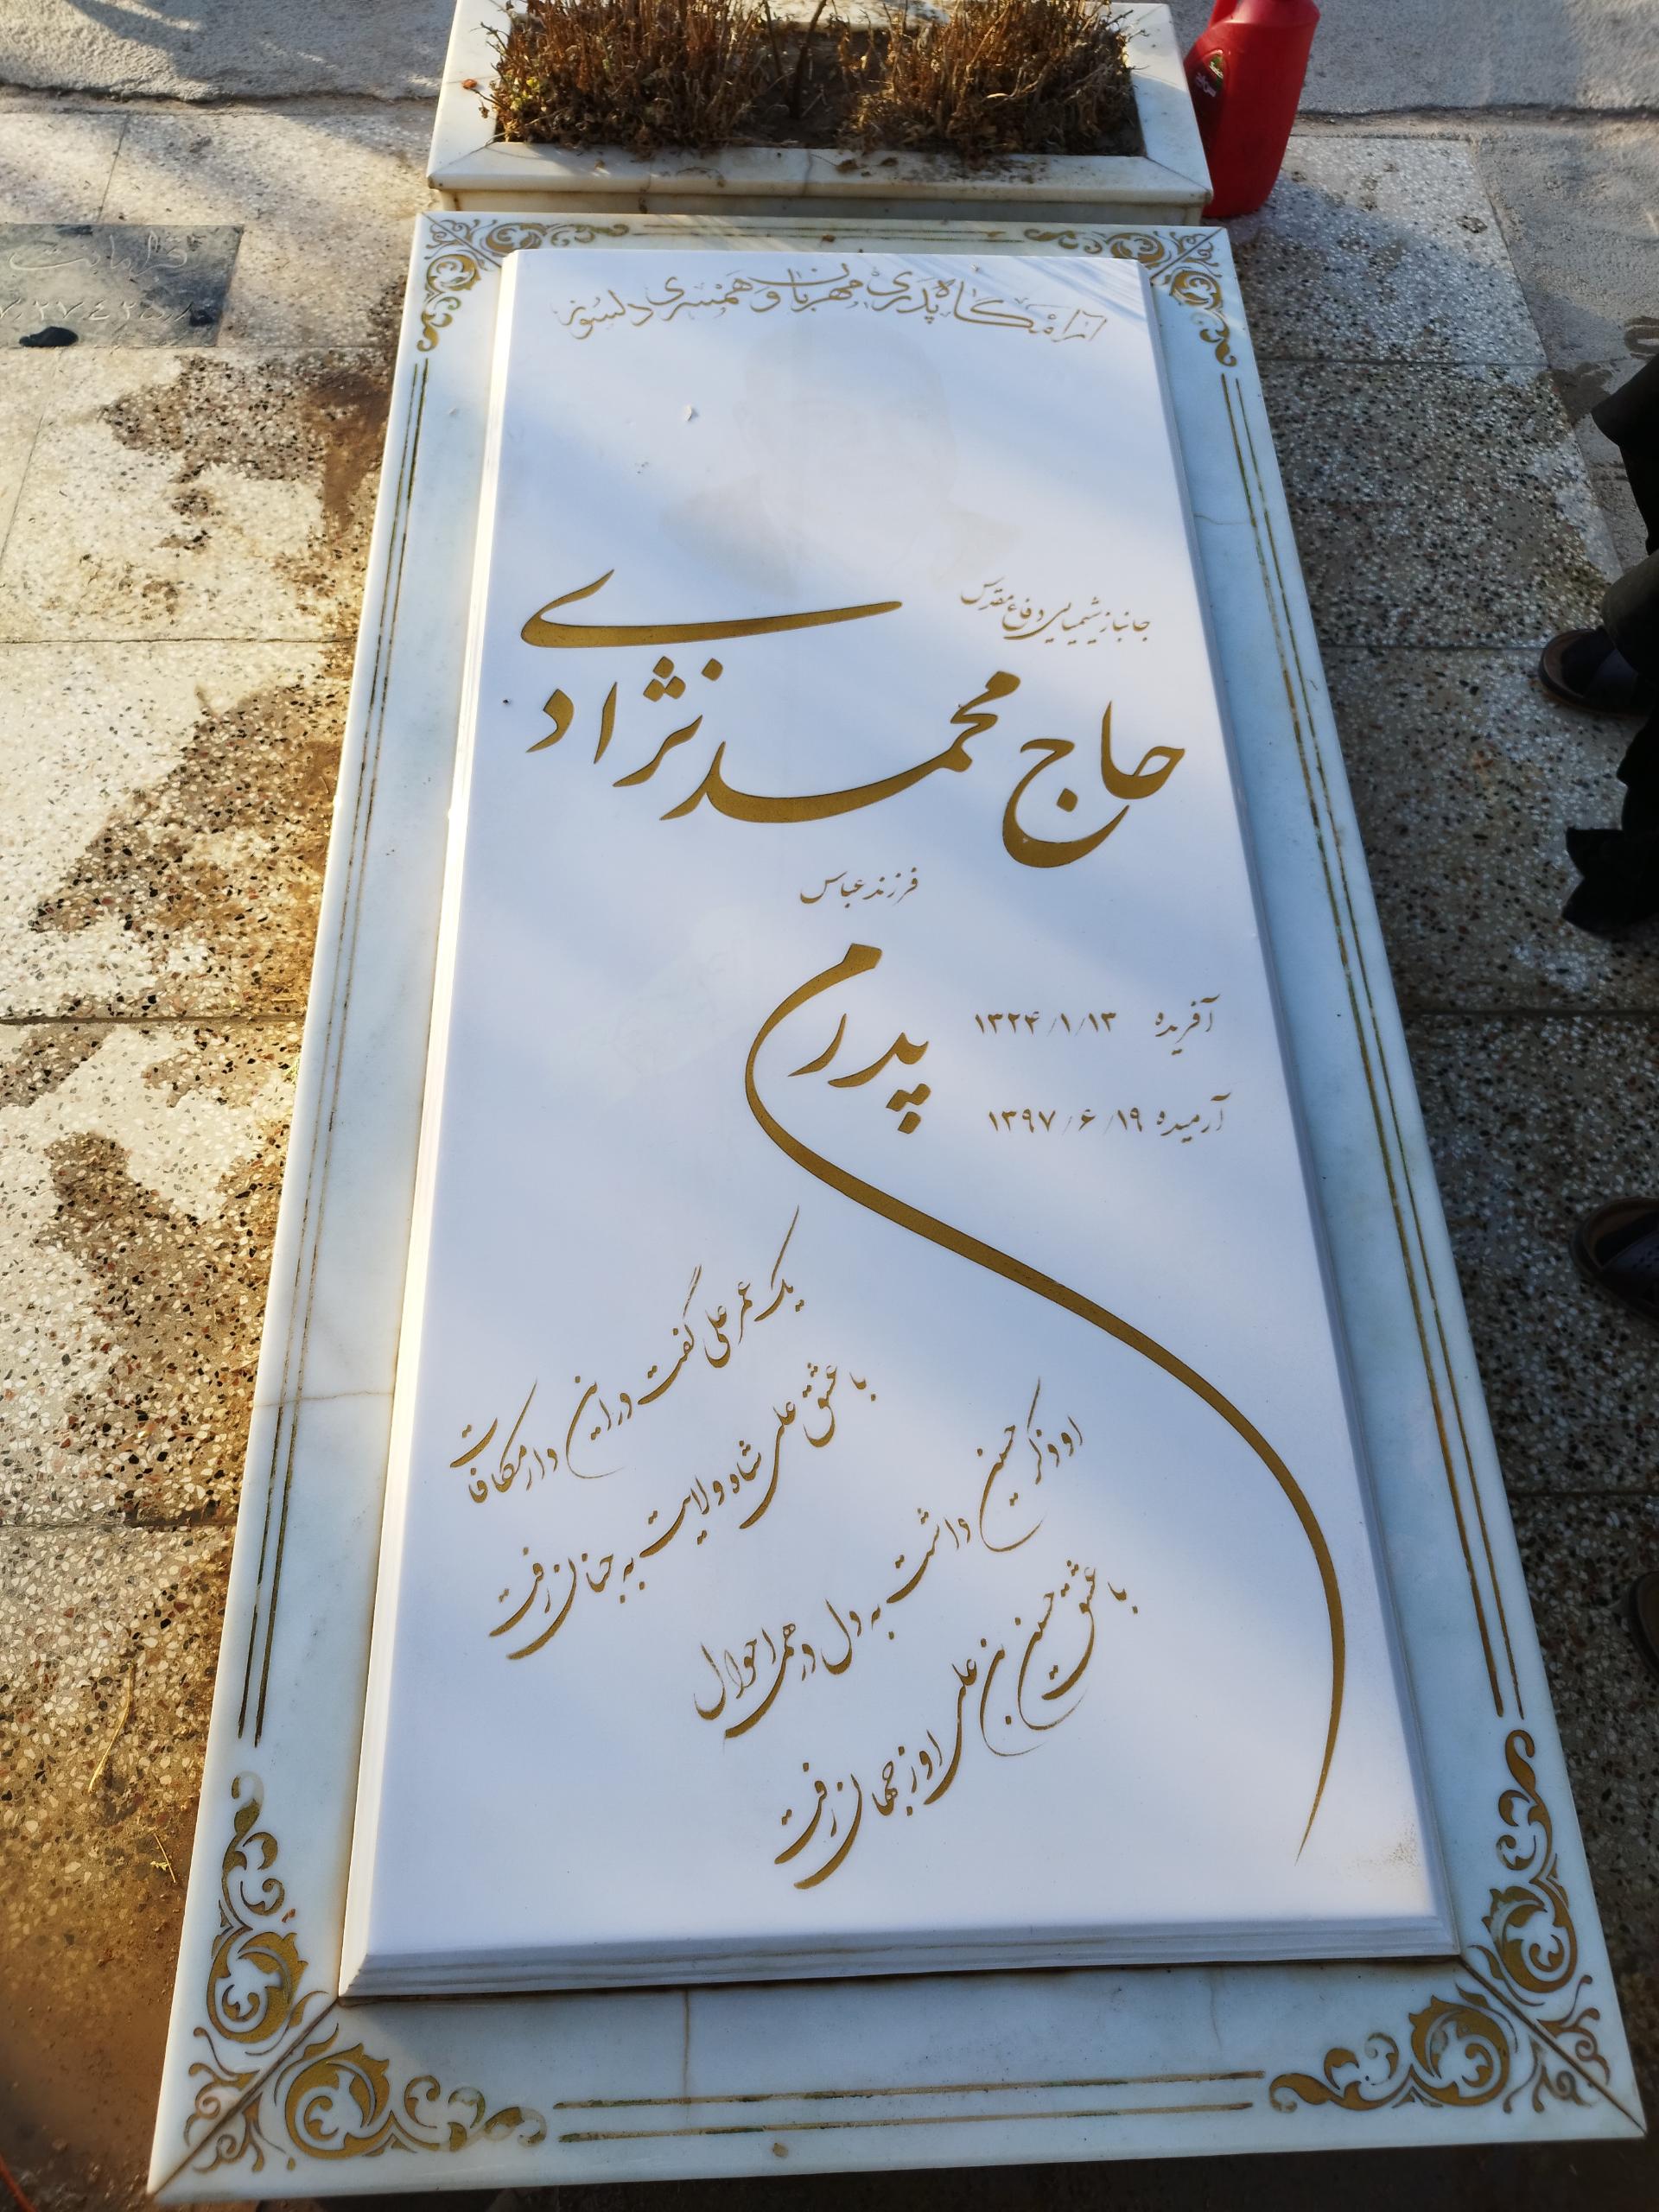 آرامگاه پدری مهربان و همسری دلسوز
جانباز شیمیایی دفاع مقدس
حاج محمد نژادی
فرزند عباس
پدرم
آفریده ۱۳۲۴/۱/۱۳
آرمیده ۱۳۹۷/۶/۱۹
یک عمر علی گفت در این دار مکافات
با عشق علی شاه ولایت به جنان رفت
او ذکر حسین داشت به دل در همه احوال
با عشق حسین بن علی او ز جهان رفت